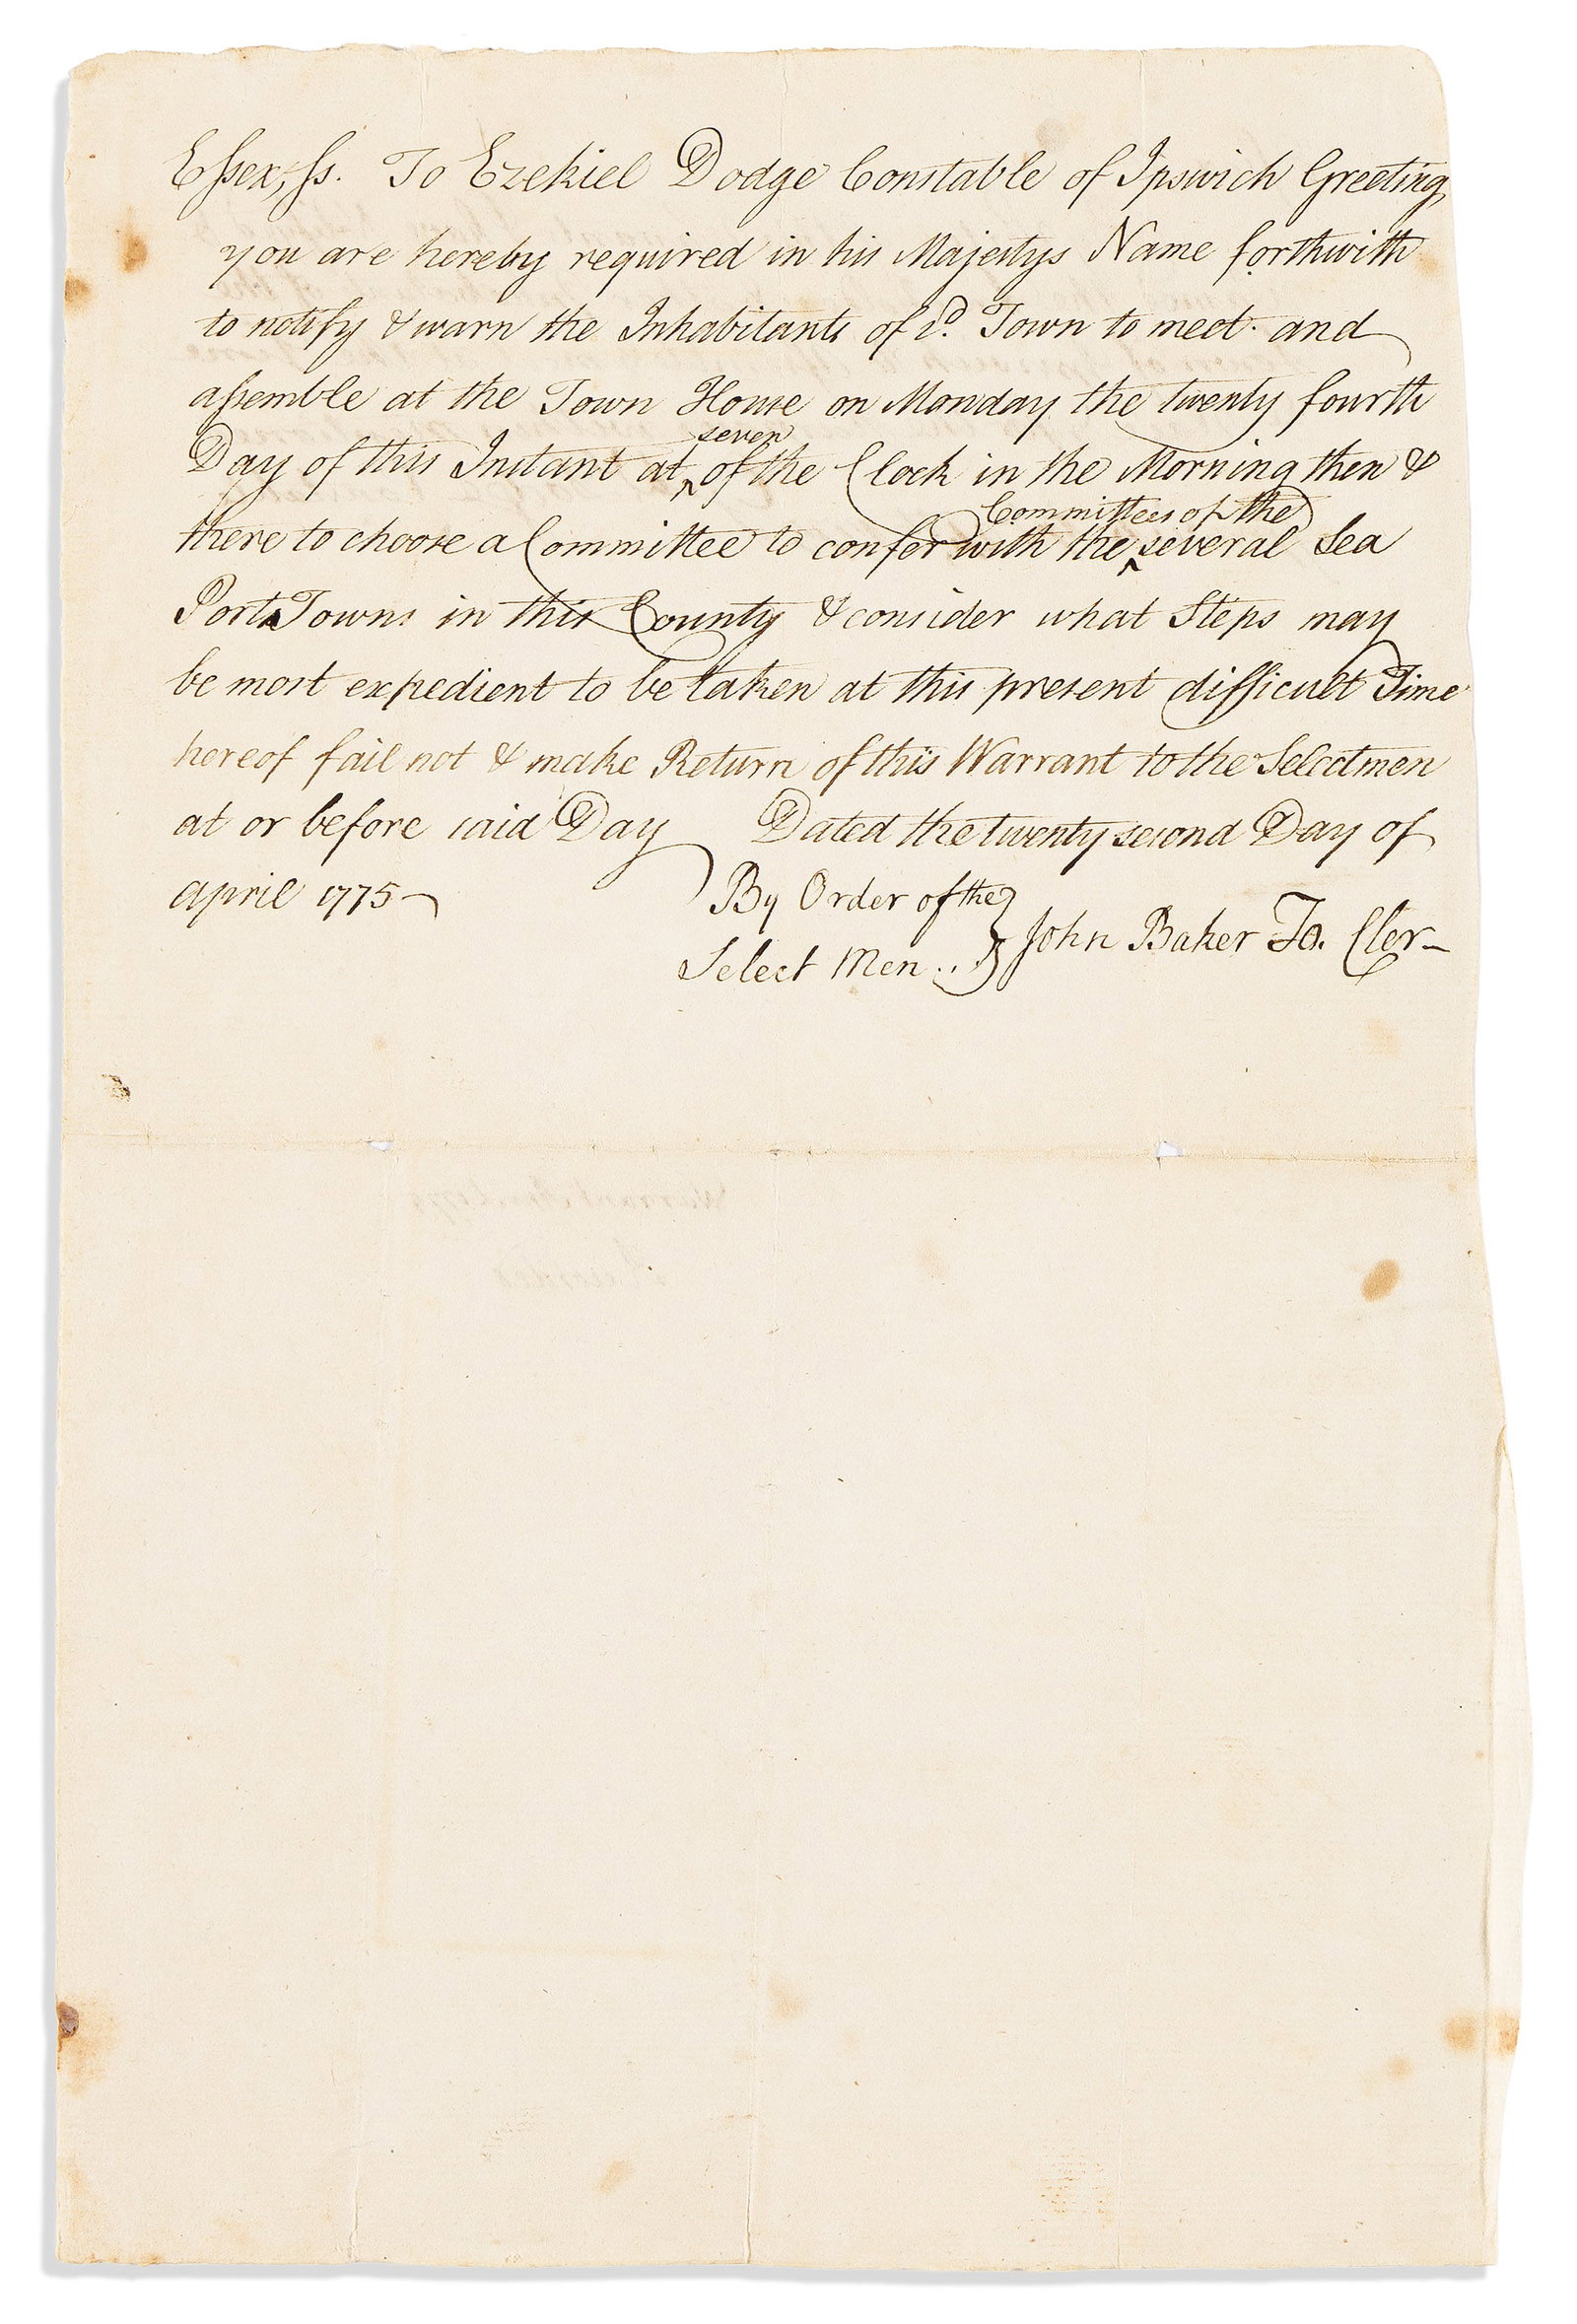 Essex, ss. To Ezekiel Dodge Constable of Ipswich Greeting
you are hereby required in his Majestys Name forthwith
to notify & warn the Inhabitants of sd. Town to meet and
assemble at the Town House on Monday the twenty fourth
seven
Day of this Instant at ‸ of the Clock in the Morning then &
Committees of the
there to choose a Committee to confer with the ‸ several Sea
Port Towns in this County & consider what Steps may
be most expedient to be taken at this present difficult Time
hereof fail not & make Return of this Warrant to the Selectmen
at or before said Day Dated the twenty second Day of
april 1775
By Order of the
Select Men .. } John Baker To. Cler